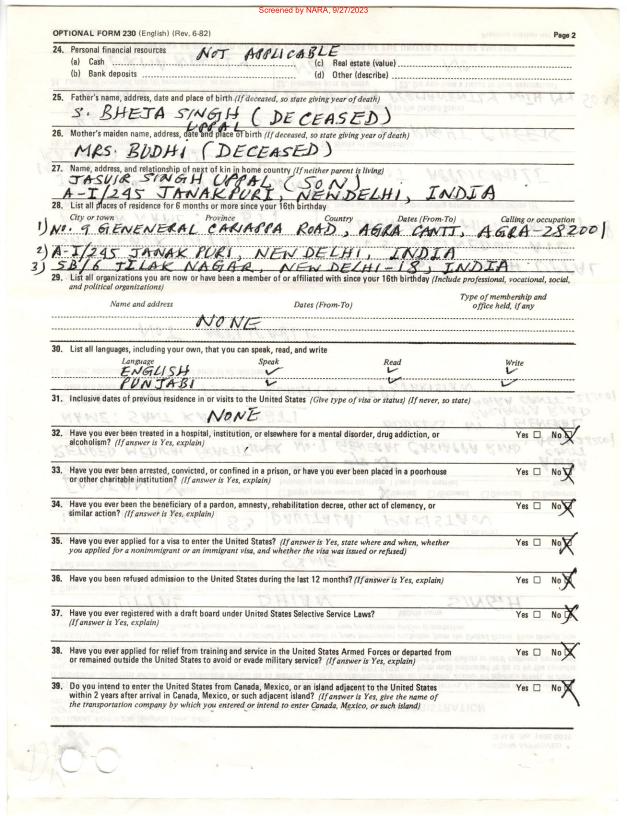 Screened by NARA, 9/27/2023
OPTIONAL FORM 230 (English) (Rev. 6-82) Page 2
24. Personal financial resources NOT APPLICABLE
(a) Cash (c) Real estate (value)
(b) Bank deposits (d) Other (describe)
25. Father's name, address, date and place of birth (If deceased, so state giving year of death)
S. BHEJA SINGH (DECEASED)
26. Mother's maiden name, address, date and place of birth (If deceased, so state giving year of death)
UPPAL
MRS. BUDHI (DECEASED)
27. Name, address, and relationship of next of kin in home country (If neither parent is living)
JASVIR SINGH UPPAL (SON)
A-I/245 JANAKPURI, NEWDELHI, INDIA
28. List all places of residence for 6 months or more since your 16th birthday
City or town Province Country Dates (From-To) Calling or occupation
1) NO. 9 GENENERAL CARIAPPA ROAD, AGRA CANTT, AGRA-282001
2) A-I/245 JANAK PURI, NEW DELHI, INDIA
3) 5B/6 TILAK NAGAR, NEW DELHI-18, INDIA
29. List all organizations you are now or have been a member of or affiliated with since your 16th birthday (Include professional, vocational, social,
and political organizations)
Name and address Dates (From-To) Type of membership and
office held, if any
NONE
30. List all languages, including your own, that you can speak, read, and write
Language Speak Read Write
ENGLISH ✓ ✓ ✓
PUNJABI ✓ ✓ ✓
31. Inclusive dates of previous residence in or visits to the United States (Give type of visa or status) (If never, so state)
NONE
32. Have you ever been treated in a hospital, institution, or elsewhere for a mental disorder, drug addiction, or Yes ☐ No ☒
alcoholism? (If answer is Yes, explain)
33. Have you ever been arrested, convicted, or confined in a prison, or have you ever been placed in a poorhouse Yes ☐ No ☒
or other charitable institution? (If Yes, explain)
34. Have you ever been the beneficiary of a pardon, amnesty, rehabilitation decree, other act of clemency, or Yes ☐ No ☒
similar action? (If answer is Yes, explain)
35. Have you ever applied for a visa to enter the United States? (If answer is Yes, state where and when, whether Yes ☐ No ☒
you applied for a nonimmigrant or an immigrant visa, and whether the visa was issued or refused)
36. Have you been refused admission to the United States during the last 12 months? (If answer is Yes, explain) Yes ☐ No ☒
37. Have you ever registered with a draft board under United States Selective Service Laws? Yes ☐ No ☒
(If answer is Yes, explain)
38. Have you ever applied for relief from training and service in the United States Armed Forces or departed from Yes ☐ No ☒
or remained outside the United States to avoid or evade military service? (If answer is Yes, explain)
39. Do you intend to enter the United States from Canada, Mexico, or an island adjacent to the United States Yes ☐ No ☒
within 2 years after arrival in Canada, Mexico, or such adjacent island? (If answer is Yes, give the name of
the transportation company by which you entered or intend to enter Canada, Mexico, or such island)